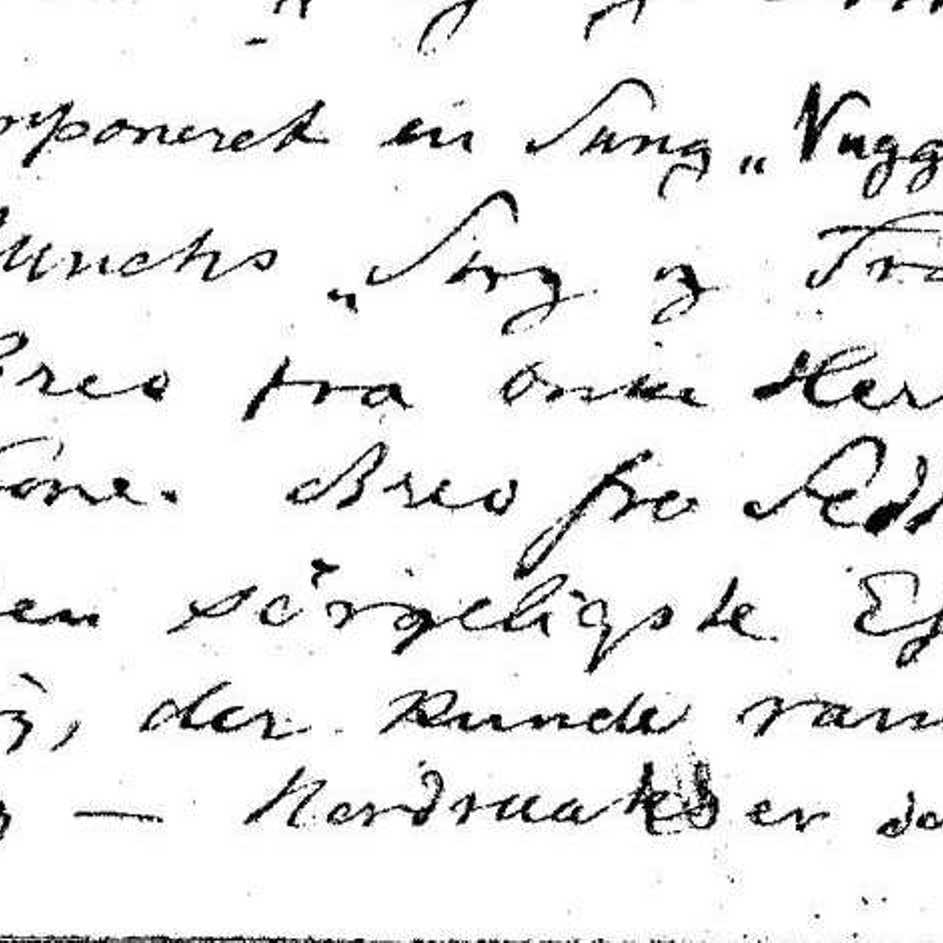 mponeret en Sang „Vugg
Munchs „Sorg og Trø
Brev fra onkel Her
Tone. Brev fra Fedt
en sörgeligste Ef
der kunde ram
— Nordraak er dø